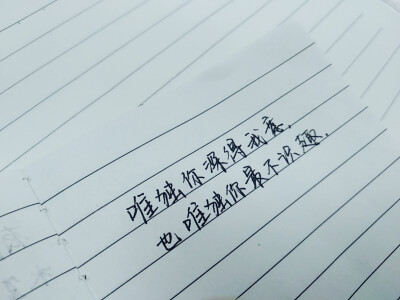 唯独你深得我意，
也唯独你最不识趣．